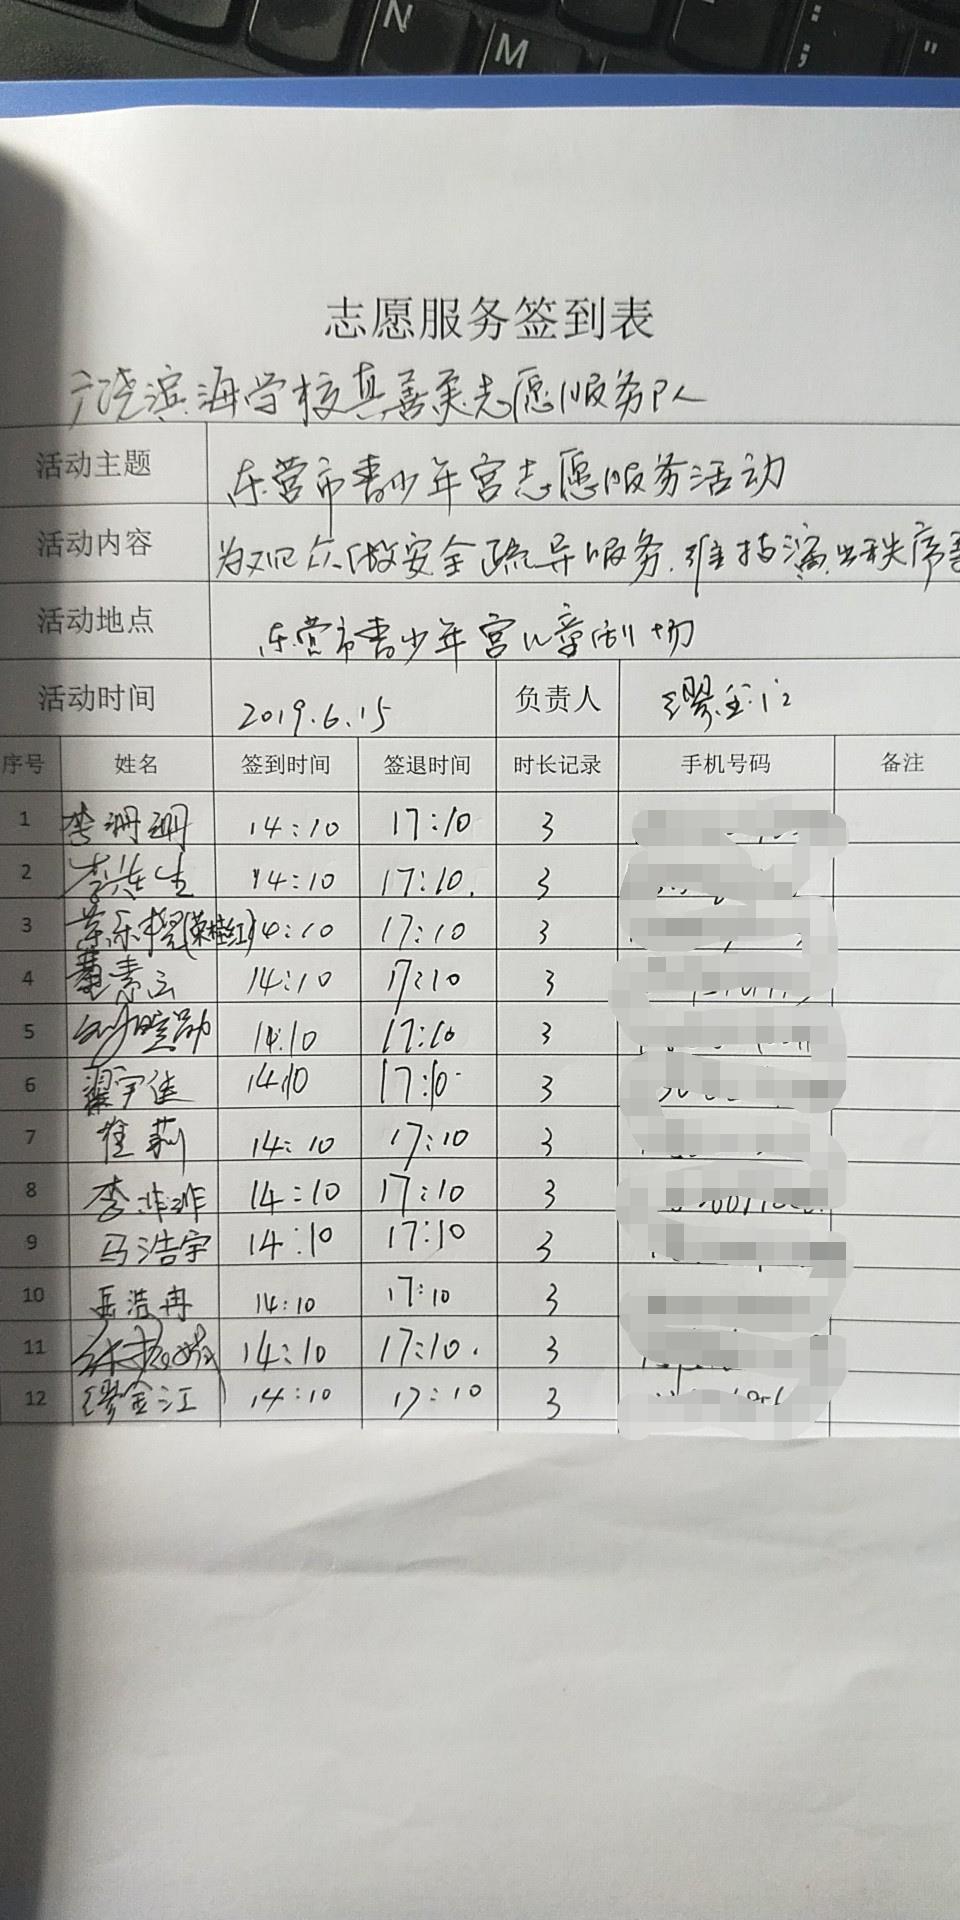 N
M
; :
"
志愿服务签到表
滨海学校真善美志愿服务队
活动主题 东营市青少年宫志愿服务活动
活动内容 为观众做安全疏导服务.维持演出秩序
活动地点 东营市青少年宫儿童剧场
活动时间 2019.6.15 负责人 缪金江
序号 姓名 签到时间 签退时间 时长记录 手机号码 备注
1 李珊珊 14:10 17:10 3
2 李 生 14:10 17:10. 3
3 14:10 17:10 3
4 14:10 17:10 3
5 14:10 17:10 3
6 翟宇佳 14:10 17:10 3
7 崔莉 14:10 17:10 3
8 李 14:10 17:10 3
9 马浩宇 14:10 17:10 3
10 岳浩冉 14:10 17:10 3
11 14:10 17:10. 3
12 缪金江 14:10 17:10 3